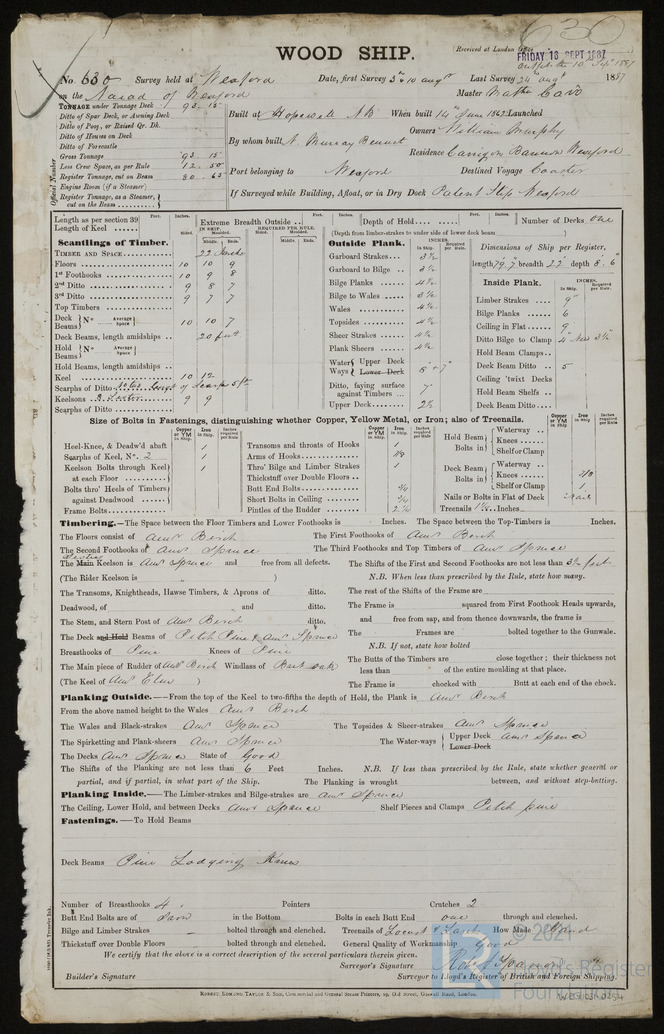 630
WOOD SHIP.
Received at London Office
FRIDAY 16 SEPT 1887
No. 630 Survey held at Wexford Date, first Survey 3rd & 10 augt Last Survey 24th augt 1887
on the of Wexford Master
TONNAGE under Tonnage Deck 93.15
Ditto of Spar Deck, or Awning Deck
Ditto of Poop, or Raised Qr. Dk.
Ditto of Houses on Deck
Ditto of Forecastle
Gross Tonnage 93.15
Less Crew Space, as per Rule 12.50
Register Tonnage, cut on Beam 80.65
Engine Room (if a Steamer)
Register Tonnage, as a Steamer, cut on the Beam
Official Number
Built at Hopewell NB When built 14th June 1862 Launched
By whom built Murray Bennet Owners William Murphy
Residence Bannow Wexford
Port belonging to Wexford Destined Voyage Coaster
If Surveyed while Building, Afloat, or in Dry Dock Patent Slip Wexford
Length as per section 39
Length of Keel
Feet. Inches.
Extreme Breadth Outside
Depth of Hold
(Depth from limber-strakes to under side of lower deck beam
Number of Decks one
Scantlings of Timber.
IN SHIP. Sided. Moulded. Middle. Ends.
REQUIRED PER RULE. Sided. Moulded. Middle. Ends.
TIMBER AND SPACE 22 Inches
Floors 10 10 9
1st Foothooks 10 9 8
2nd Ditto 9 8 7
3rd Ditto 9 7 7
Top Timbers
Deck Beams No Average Space 10 10 7
Deck Beams, length amidships 20 feet
Hold Beams No Average Space
Hold Beams, length amidships
Keel 10 12
Scarphs of Ditto 5 ft
Keelsons 9 9
Scarphs of Ditto
Outside Plank.
INCHES. In Ship. Required per Rule.
Garboard Strakes 3½
Garboard to Bilge 3½
Bilge Planks
Bilge to Wales 3½
Wales
Topsides
Sheer Strakes
Plank Sheers
Water Ways Upper Deck Lower Deck 6 & 7
Ditto, faying surface against Timbers 7
Upper Deck 2½
Dimensions of Ship per Register,
length 79.7 breadth 22 depth 8.6
Inside Plank.
INCHES. In Ship. Required per Rule.
Limber Strakes 9
Bilge Planks 6
Ceiling in Flat 9
Ditto Bilge to Clamp
Hold Beam Clamps
Deck Beam Ditto 5
Ceiling 'twixt Decks
Hold Beam Shelfs
Deck Beam Ditto
Size of Bolts in Fastenings, distinguishing whether Copper, Yellow Metal, or Iron; also of Treenails.
Copper or YM in Ship. Iron in Ship. Inches required per Rule
Heel-Knee, & Deadw'd abaft 1
Scarphs of Keel, No. 2 1
Keelson Bolts through Keel at each Floor 1
Bolts thro' Heels of Timbers against Deadwood
Frame Bolts
Transoms and throats of Hooks 1
Arms of Hooks
Thro' Bilge and Limber Strakes 1
Thickstuff over Double Floors
Butt End Bolts ¾
Short Bolts in Ceiling ¾
Pintles of the Rudder 2¼
Hold Beam Bolts in Waterway
Knees
Shelf or Clamp
Deck Beam Bolts in Waterway
Knees
Shelf or Clamp 1
Nails or Bolts in Flat of Deck nails
Treenails Inches
Timbering.—The Space between the Floor Timbers and Lower Foothooks is Inches. The Space between the Top-Timbers is Inches.
The Floors consist of Amn Birch The First Foothooks of Amn Birch
The Second Foothooks of Amn Spruce The Third Foothooks and Top Timbers of Amn Spruce
The Main Keelson is Amn Spruce and free from all defects. The Shifts of the First and Second Foothooks are not less than 3½ feet
(The Rider Keelson is ) N.B. When less than prescribed by the Rule, state how many.
The Transoms, Knightheads, Hawse Timbers, & Aprons of ditto. The rest of the Shifts of the Frame are
Deadwood, of and ditto. The Frame is squared from First Foothook Heads upwards,
The Stem, and Stern Post of Amn Birch ditto. and free from sap, and from thence downwards, the frame is
The Deck and Hold Beams of Pitch Pine & Amn Spruce The Frames are bolted together to the Gunwale.
Breasthooks of Pine Knees of Pine N.B. If not, state how bolted
The main piece of Rudder of Amn Birch Windlass of oak The Butts of the Timbers are close together; their thickness not less than of the entire moulding at that place.
(The Keel of Amn Elm ) The Frame is chocked with Butt at each end of the chock.
Planking Outside.—From the top of the Keel to two-fifths the depth of Hold, the Plank is Amn Birch
From the above named height to the Wales Amn Birch
The Wales and Black-strakes Amn Spruce The Topsides & Sheer-strakes Amn Spruce
The Spirketting and Plank-sheers Amn Spruce The Water-ways Upper Deck Amn Spruce Lower Deck
The Decks Amn Spruce State of Good
The Shifts of the Planking are not less than 6 Feet Inches. N.B. If less than prescribed by the Rule, state whether general or
partial, and if partial, in what part of the Ship. The Planking is wrought between, and without step-butting.
Planking Inside.—The Limber-strakes and Bilge-strakes are Amn Spruce
The Ceiling, Lower Hold, and between Decks Amn Spruce Shelf Pieces and Clamps Pitch pine
Fastenings.—To Hold Beams
Deck Beams Pine Lodging Knees
Number of Breasthooks 4 Pointers Crutches 2
Butt End Bolts are of Iron in the Bottom Bolts in each Butt End one through and clenched.
Bilge and Limber Strakes bolted through and clenched. Treenails of Locust How Made Hand
Thickstuff over Double Floors bolted through and clenched. General Quality of Workmanship good
We certify that the above is a correct description of the several particulars therein given.
Surveyor's Signature
Builder's Signature Surveyor to Lloyd's Register of British and Foreign Shipping.
ROBERT EDMUND TAYLOR & SON, Commercial and General Steam Printers, 19, Old Street, Goswell Road, London.
© 2021
Lloyd's Register
Foundation